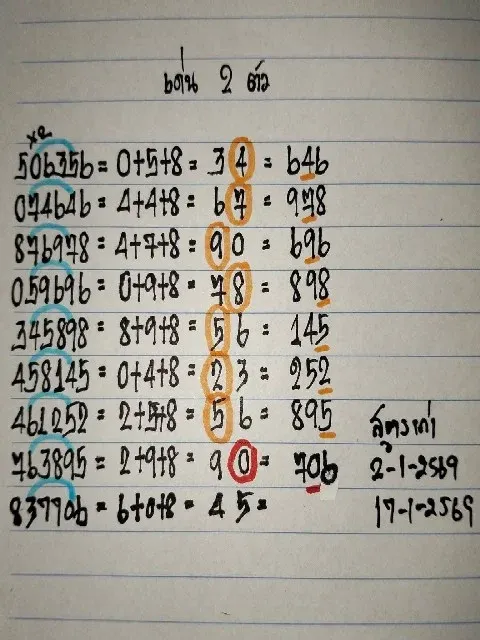 เด่น 2 ตัว
x2
506356 = 0+5+8 = 34 = 646
074646 = 4+4+8 = 67 = 978
876978 = 4+7+8 = 90 = 696
059696 = 0+9+8 = 78 = 898
345898 = 8+9+8 = 56 = 145
458145 = 0+4+8 = 23 = 252
461252 = 2+5+8 = 56 = 895
สูตรเก่า
763895 = 2+9+8 = 90 = 706 2-1-2569
837706 = 6+0+8 = 45 = 17-1-2569